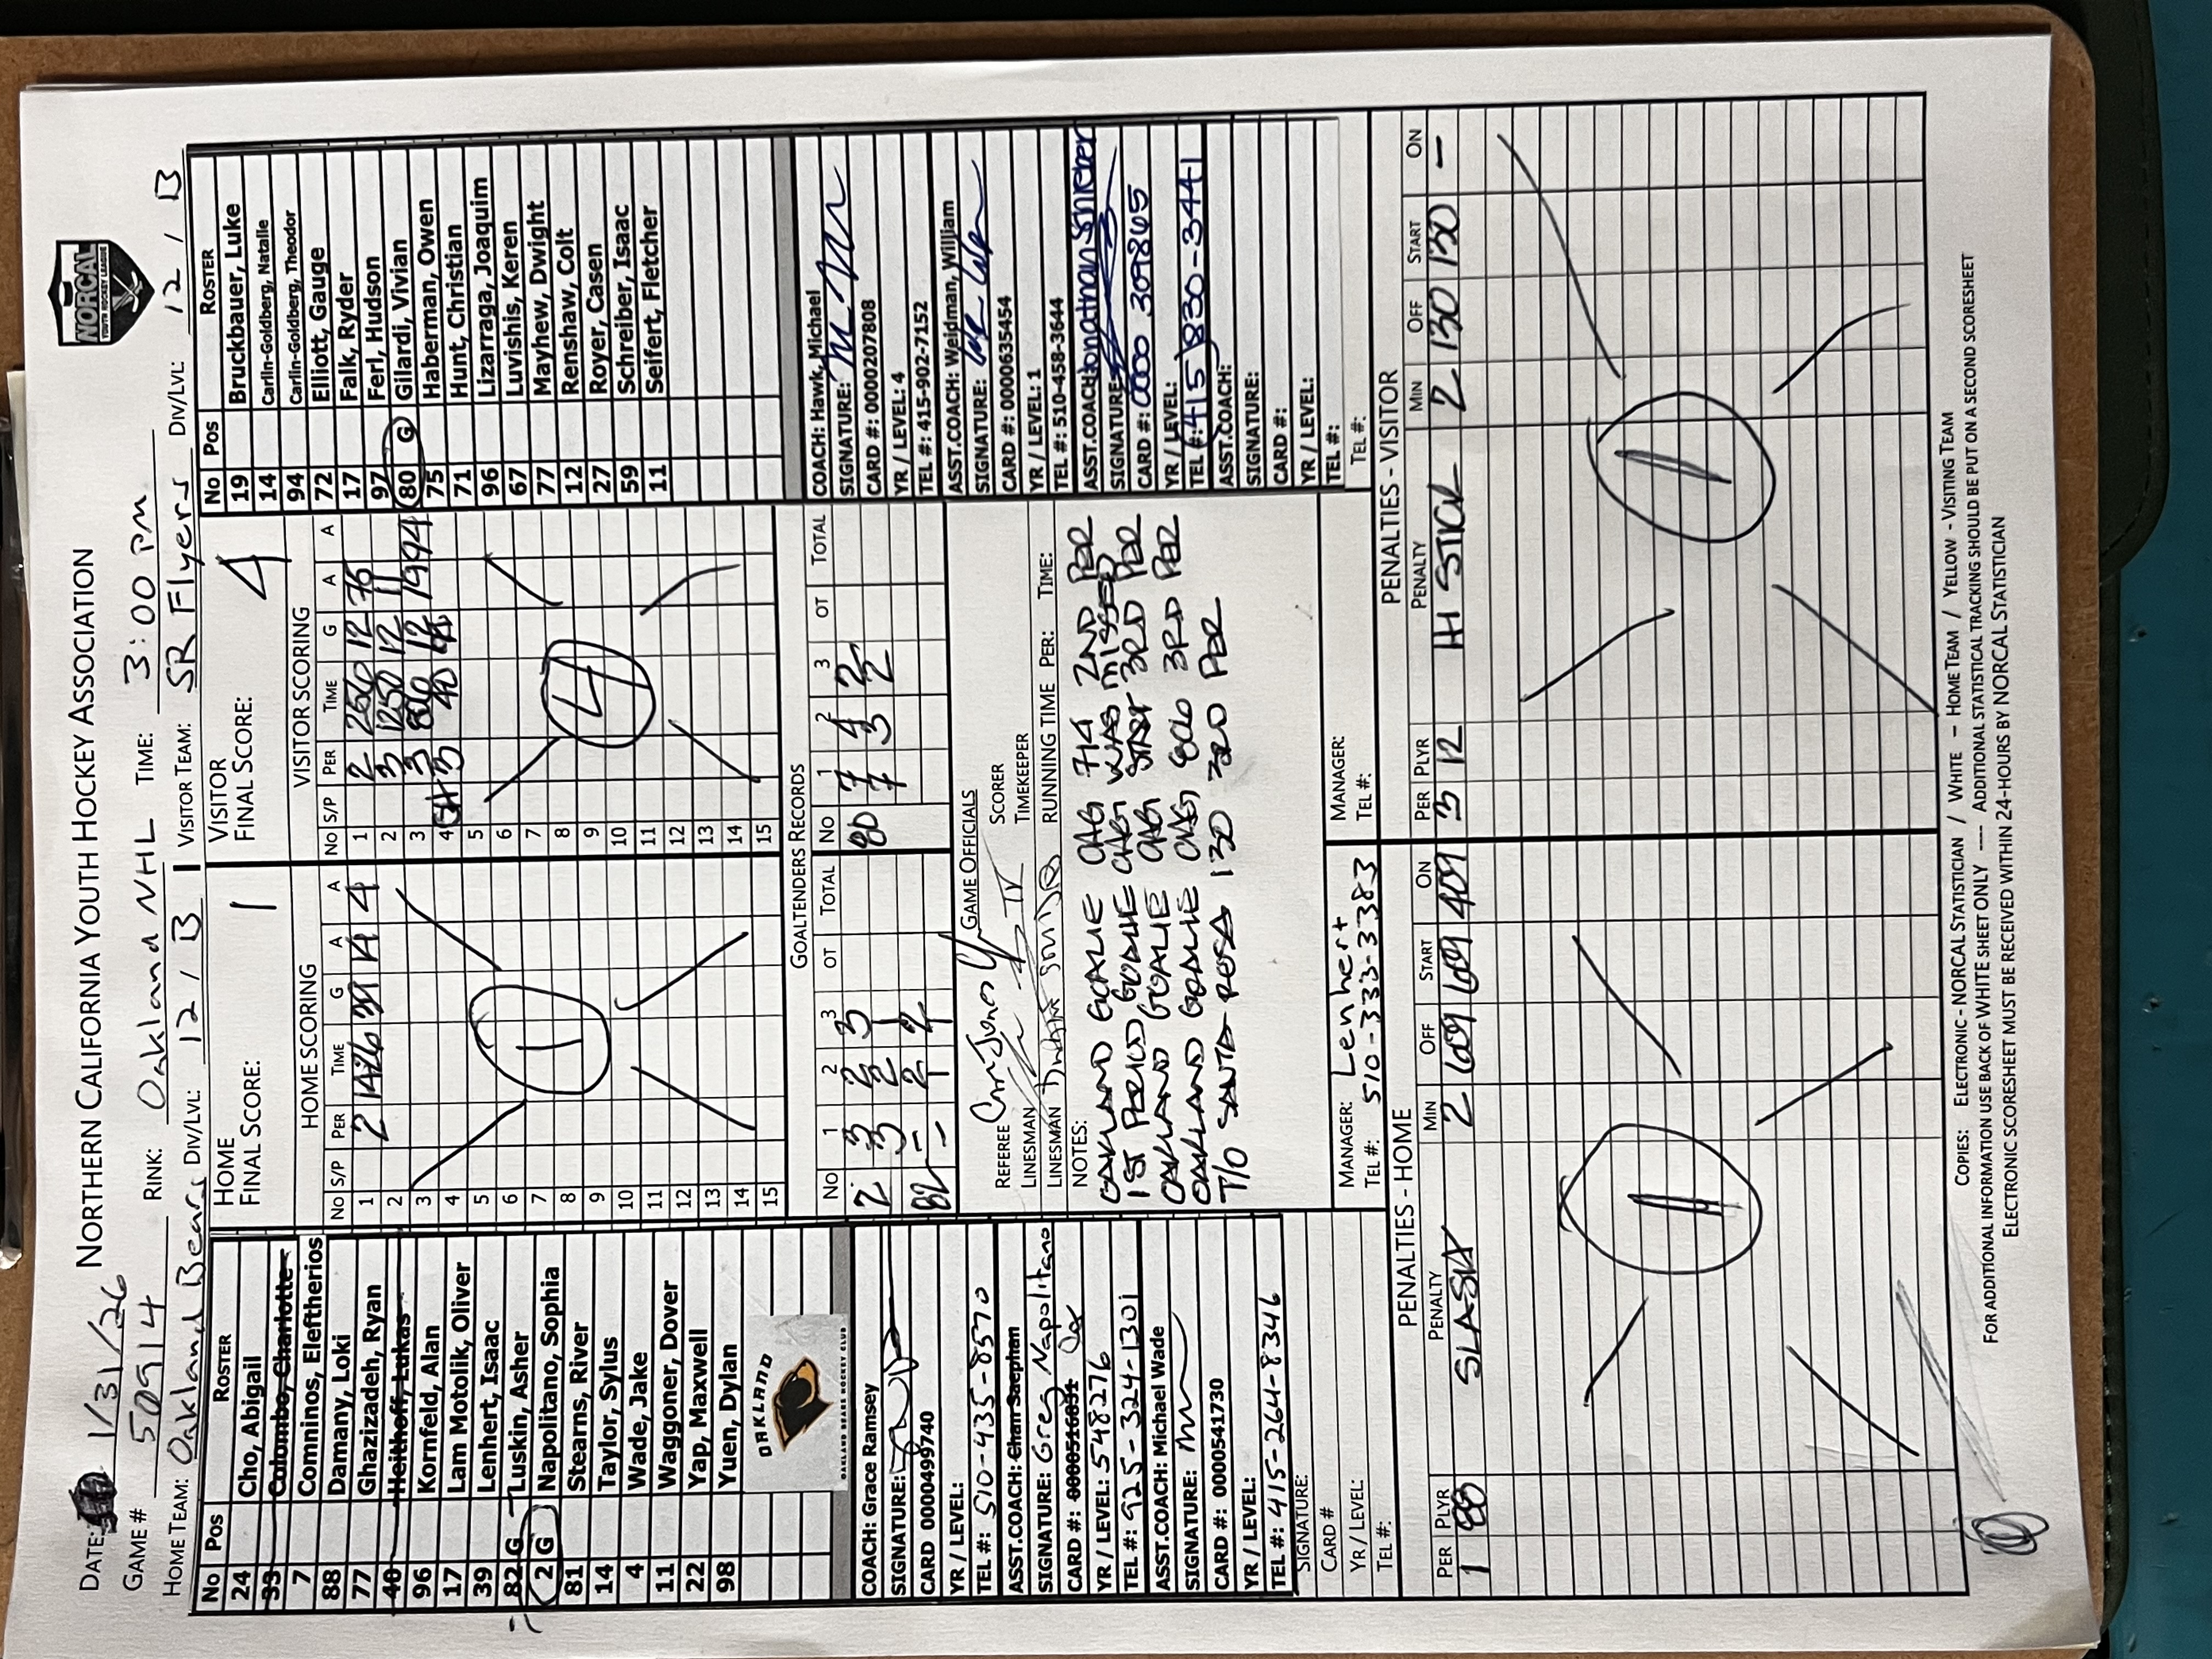 NORTHERN CALIFORNIA YOUTH HOCKEY ASSOCIATION
NORCAL
YOUTH HOCKEY LEAGUE
DATE: 1/31/26
GAME # 50914 RINK: Oakland NHL TIME: 3:00 PM
HOME TEAM: Oakland Bears DIV/LVL: 12 / B VISITOR TEAM: SR Flyers DIV/LVL: 12 / B
No Pos ROSTER
24 Cho, Abigail
33 Colombo, Charlotte
7 Comninos, Eleftherios
88 Damany, Loki
77 Ghazizadeh, Ryan
40 Heithoff, Lukas
96 Kornfeld, Alan
17 Lam Motolik, Oliver
39 Lenhert, Isaac
82 G Luskin, Asher
2 G Napolitano, Sophia
81 Stearns, River
14 Taylor, Sylus
4 Wade, Jake
11 Waggoner, Dover
22 Yap, Maxwell
98 Yuen, Dylan
OAKLAND
OAKLAND BEARS HOCKEY CLUB
COACH: Grace Ramsey
SIGNATURE:
CARD 0000499740
YR / LEVEL:
TEL #: 510-435-8570
ASST.COACH: Chan Saephan
SIGNATURE: Greg Napolitano
CARD #: 0000516831
YR / LEVEL: 548276
TEL #: 925-324-1301
ASST.COACH: Michael Wade
SIGNATURE:
CARD #: 0000541730
YR / LEVEL:
TEL #: 415-264-8346
SIGNATURE:
CARD #
YR / LEVEL:
TEL #:
HOME
FINAL SCORE: 1
HOME SCORING
No S/P PER TIME G A A
1 2 1426 39 14 4
2
3
4
5
6
7
8
9
10
11
12
13
14
15
1
VISITOR
FINAL SCORE: 4
VISITOR SCORING
No S/P PER TIME G A A
1 2 256 12 76
2 3 1250 12 11
3 3 800 12 19 94
4 SH 3 40
5
6
7
8
9
10
11
12
13
14
15
4
GOALTENDERS RECORDS
No 1 2 3 OT TOTAL No 1 2 3 OT TOTAL
2 3 2 3 80 7 4 2
3 2 1 7 3 2
82 - 2 2
- 1
GAME OFFICIALS
REFEREE SCORER
LINESMAN TIMEKEEPER
LINESMAN RUNNING TIME PER: TIME:
NOTES:
OAKLAND GOALIE CHG 714 2ND PER
1ST PERIOD GOALIE CHG WAS MISSED
OAKLAND GOALIE CHG START 3RD PER
OAKLAND GOALIE CHG 806 3RD PER
T/O SANTA ROSA 130 3RD PER
MANAGER: Lenhert
TEL #: 510-333-3383
MANAGER:
TEL #:
No Pos ROSTER
19 Bruckbauer, Luke
14 Carlin-Goldberg, Natalie
94 Carlin-Goldberg, Theodor
72 Elliott, Gauge
17 Falk, Ryder
97 Ferl, Hudson
80 G Gilardi, Vivian
75 Haberman, Owen
71 Hunt, Christian
96 Lizarraga, Joaquim
67 Luvishis, Keren
77 Mayhew, Dwight
12 Renshaw, Colt
27 Royer, Casen
59 Schreiber, Isaac
11 Seifert, Fletcher
COACH: Hawk, Michael
SIGNATURE:
CARD #: 0000207808
YR / LEVEL: 4
TEL #: 415-902-7152
ASST.COACH: Weidman, William
SIGNATURE:
CARD #: 0000635454
YR / LEVEL: 1
TEL #: 510-458-3644
ASST.COACH: Jonathan
SIGNATURE:
CARD #: 0000 309845
YR / LEVEL:
TEL #: (415) 830-3441
ASST.COACH:
SIGNATURE:
CARD #:
YR / LEVEL:
TEL #:
TEL #:
PENALTIES - HOME
PER PLYR PENALTY MIN OFF START ON
1 88 SLASH 2 609 609 409
1
PENALTIES - VISITOR
PER PLYR PENALTY MIN OFF START ON
3 12 HI STICK 2 130 130 -
1
COPIES: ELECTRONIC - NORCAL STATISTICIAN / WHITE - HOME TEAM / YELLOW - VISITING TEAM
FOR ADDITIONAL INFORMATION USE BACK OF WHITE SHEET ONLY ---- ADDITIONAL STATISTICAL TRACKING SHOULD BE PUT ON A SECOND SCORESHEET
ELECTRONIC SCORESHEET MUST BE RECEIVED WITHIN 24-HOURS BY NORCAL STATISTICIAN